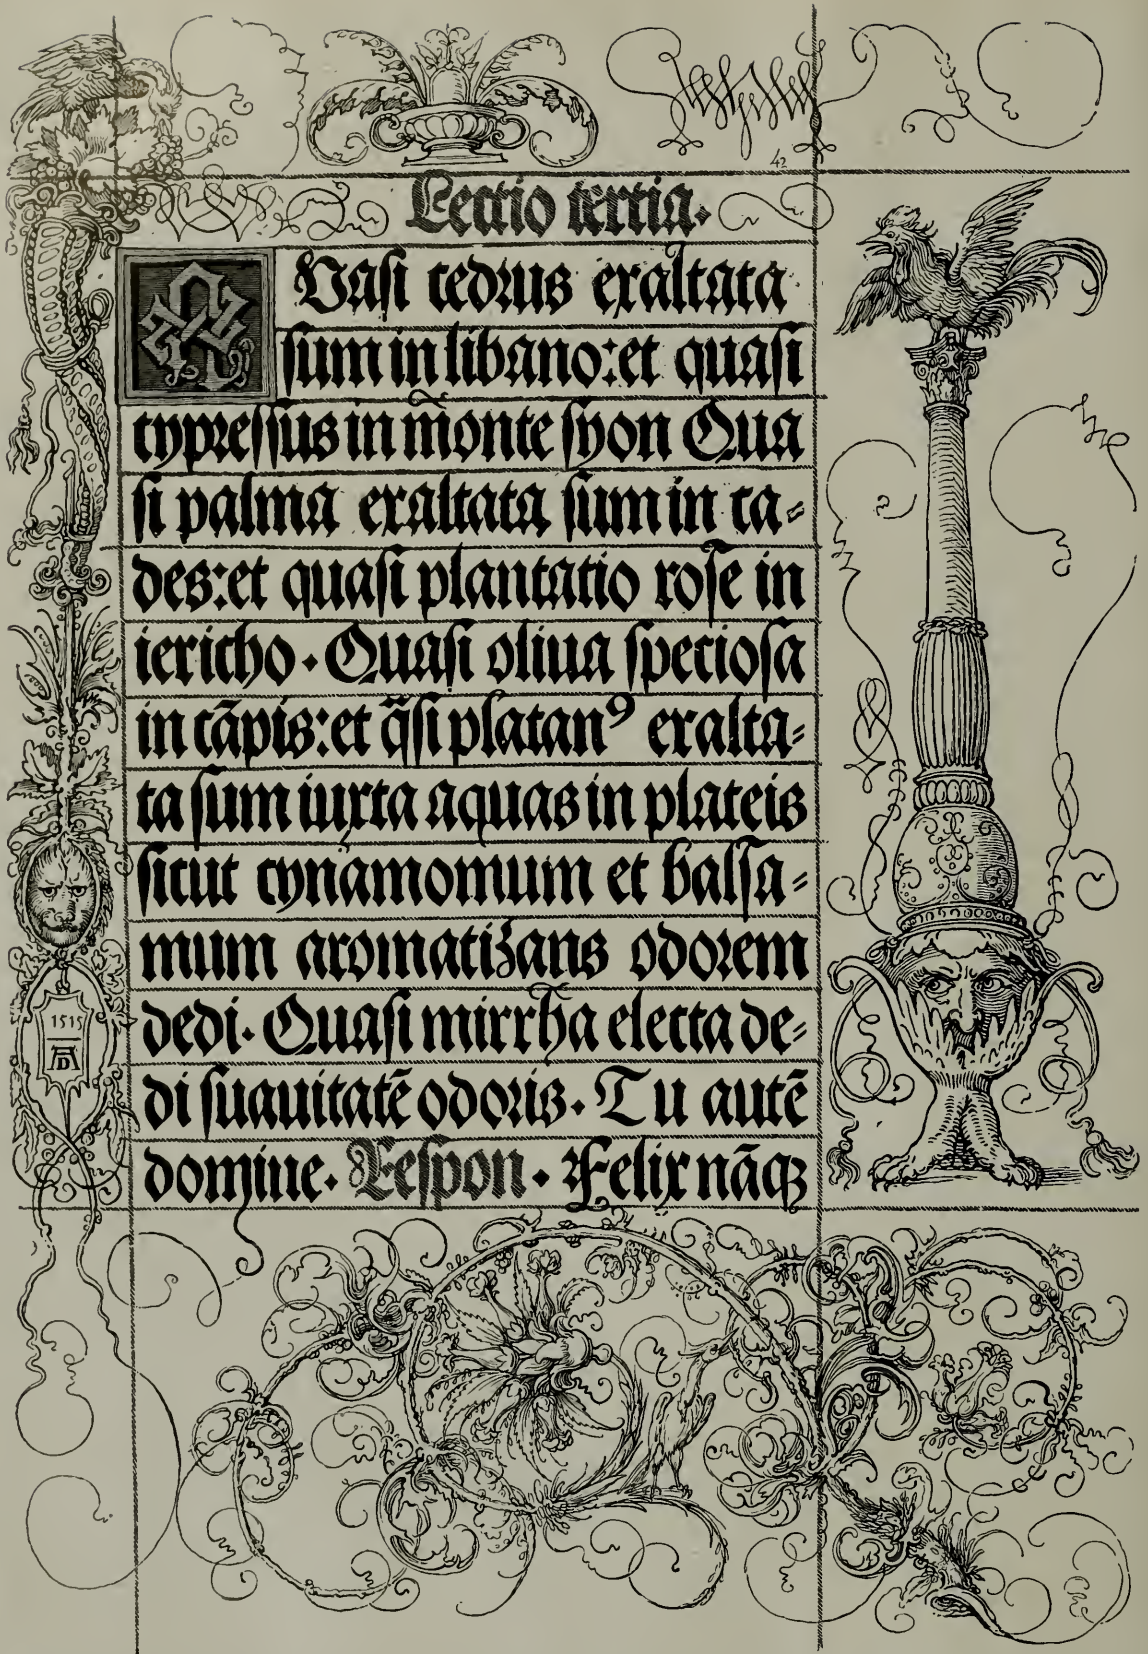 42
Lectio tertia.
QUasi cedrus exaltata
sum in libano: et quasi
cypressus in monte syon Qua
si palma exaltata sum in ca-
des: et quasi plantatio rose in
iericho. Quasi oliua speciosa
in cāpis: et q̄si platanꝰ exalta-
ta sum iuxta aquas in plateis
sicut cynamomum et balsa-
mum aromatizans odorem
dedi. Quasi mirrha electa de-
di suauitatē odoris. Tu autē
domine. Respon. Felix nāqꝫ
1515
AD